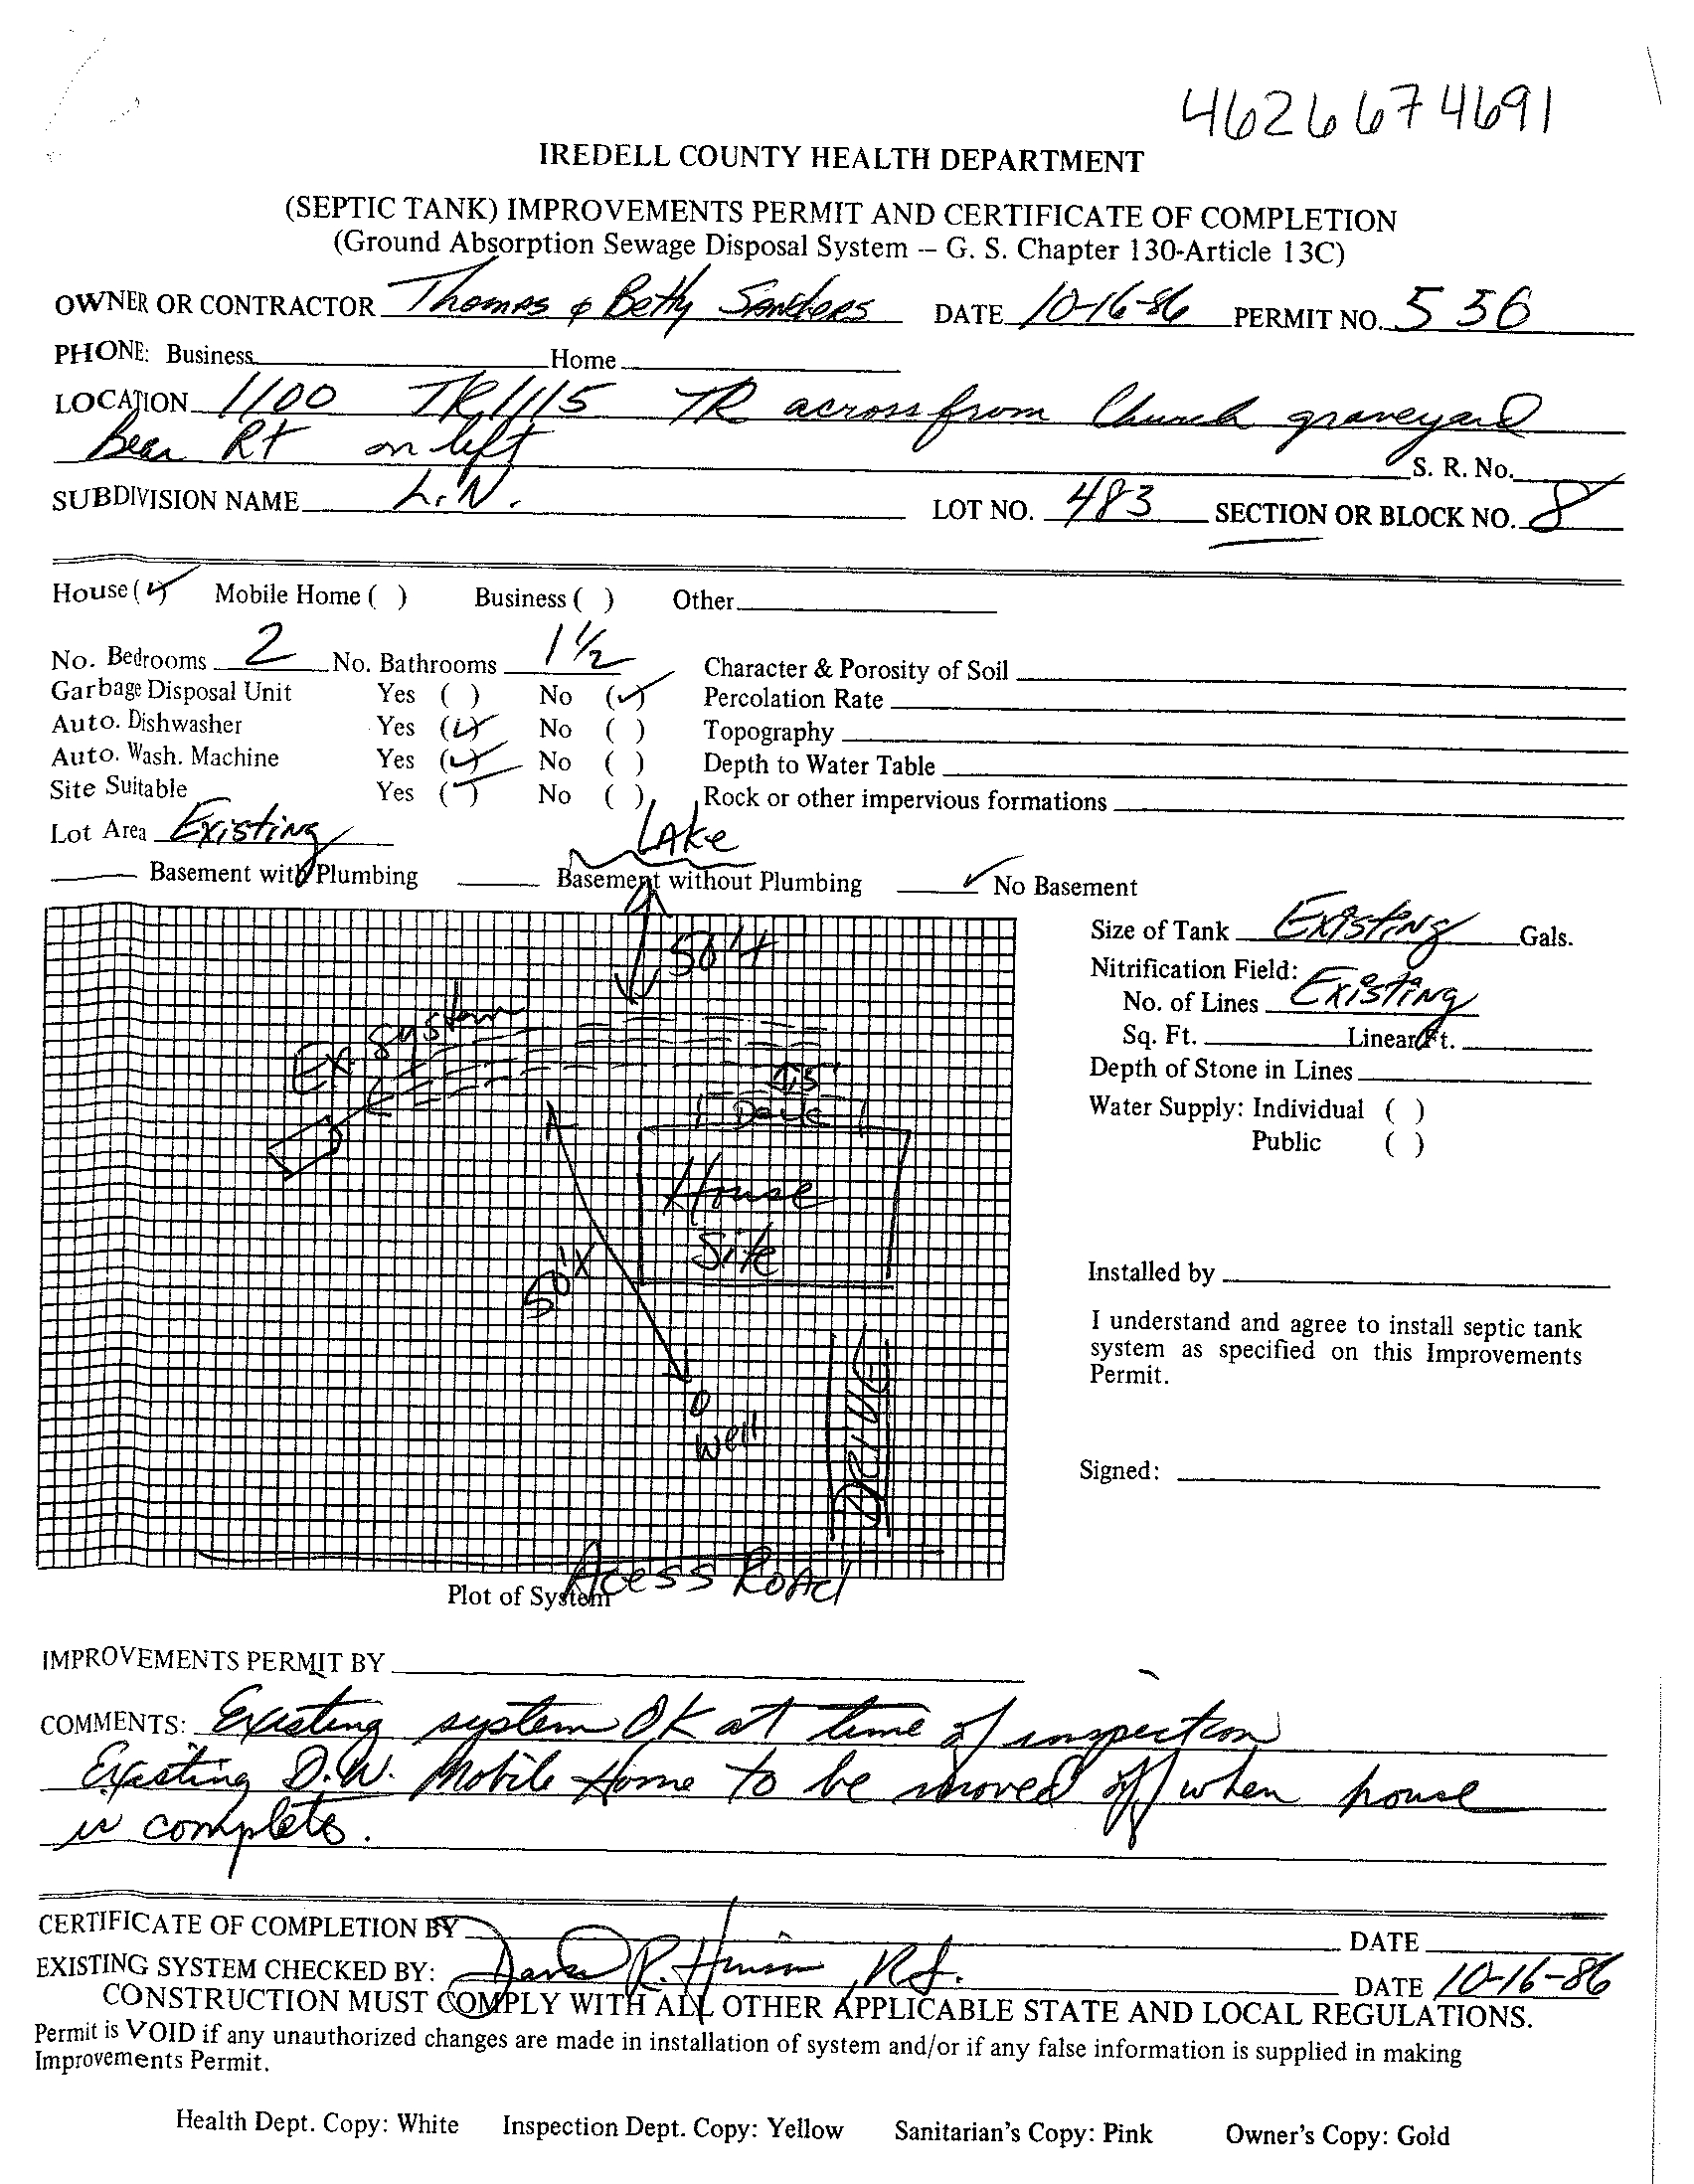 4626674691
IREDELL COUNTY HEALTH DEPARTMENT
(SEPTIC TANK) IMPROVEMENTS PERMIT AND CERTIFICATE OF COMPLETION
(Ground Absorption Sewage Disposal System -- G. S. Chapter 130-Article 13C)
OWNER OR CONTRACTOR Thomas & Betty Sanders DATE 10-16-86 PERMIT NO. 556
PHONE: Business Home
LOCATION 1100 TR 1115 TR across from Church graveyard
Bear Rt on left S. R. No.
SUBDIVISION NAME L.N. LOT NO. 483 SECTION OR BLOCK NO. 8
House (✓) Mobile Home ( ) Business ( ) Other
No. Bedrooms 2 No. Bathrooms 1 1/2 Character & Porosity of Soil
Garbage Disposal Unit Yes ( ) No (✓) Percolation Rate
Auto. Dishwasher Yes (✓) No ( ) Topography
Auto. Wash. Machine Yes (✓) No ( ) Depth to Water Table
Site Suitable Yes (✓) No ( ) Rock or other impervious formations
Lot Area Existing LAke
Basement with Plumbing Basement without Plumbing ✓ No Basement
Size of Tank Existing Gals.
50'+
Nitrification Field:
Ex. system No. of Lines Existing
Sq. Ft. Linear Ft.
Depth of Stone in Lines
Deck Water Supply: Individual ( )
Public ( )
House
Site
50'
Installed by
I understand and agree to install septic tank
system as specified on this Improvements
Permit.
well
DRIVE
Signed:
Acess Road
Plot of System
IMPROVEMENTS PERMIT BY
COMMENTS: Existing system OK at time of inspection
Existing D.W. Mobile Home to be moved off when house
is complete.
CERTIFICATE OF COMPLETION BY DATE
EXISTING SYSTEM CHECKED BY: R. R.S. DATE 10-16-86
CONSTRUCTION MUST COMPLY WITH ALL OTHER APPLICABLE STATE AND LOCAL REGULATIONS.
Permit is VOID if any unauthorized changes are made in installation of system and/or if any false information is supplied in making
Improvements Permit.
Health Dept. Copy: White Inspection Dept. Copy: Yellow Sanitarian's Copy: Pink Owner's Copy: Gold